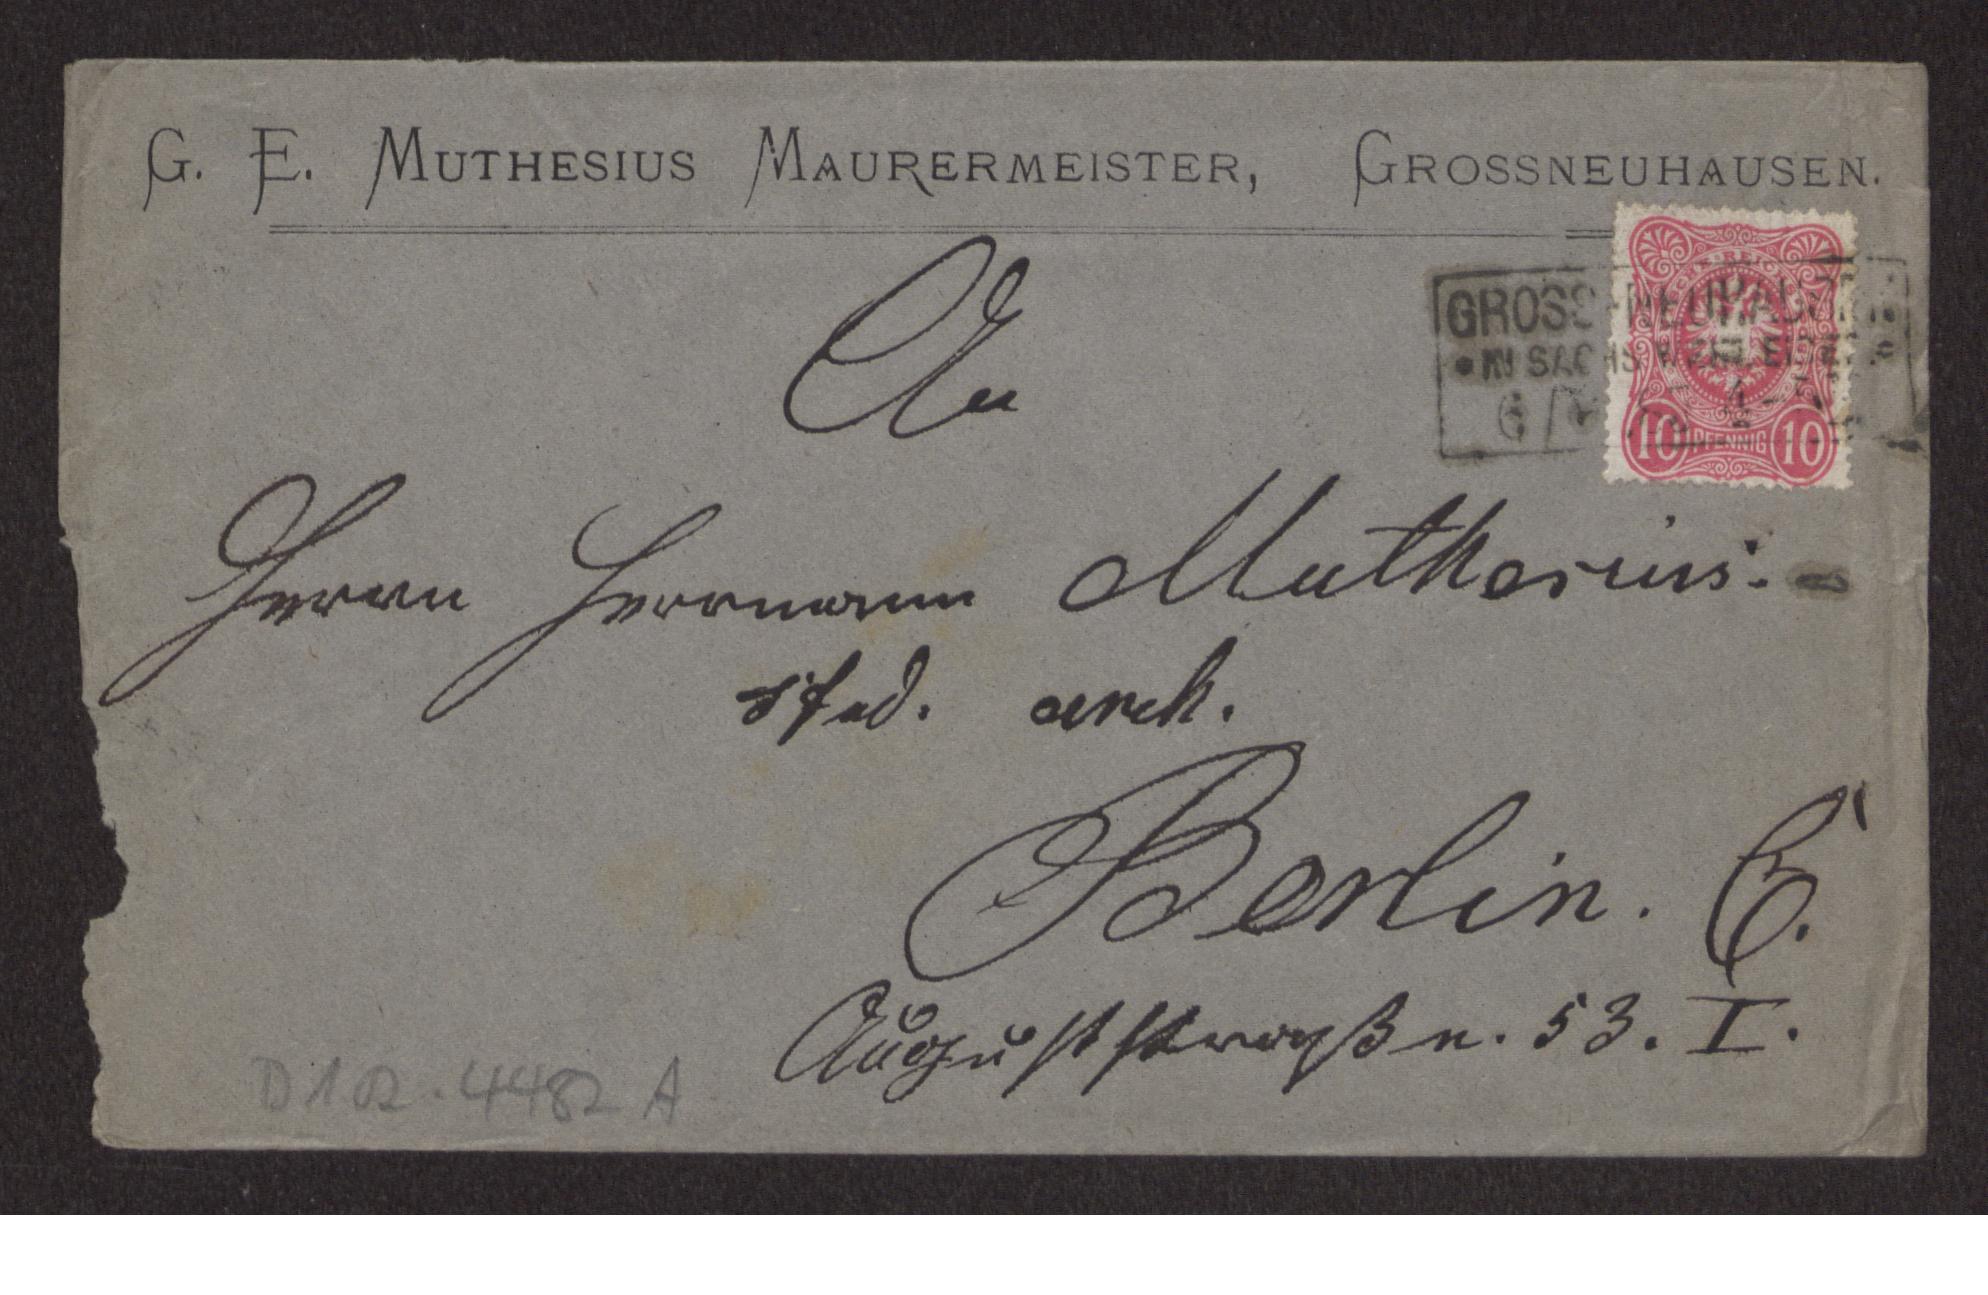 G. E. MUTHESIUS MAURERMEISTER, GROSSNEUHAUSEN.
An
GROSS-NEUHAUSEN
* IN SACHS. WEIMAR *
10 PFENNIG 10
Herrn Herrmann Muthesius.
stud. arch.
Berlin. C.
Auguststraße n. 53. I.
D102-4482 A